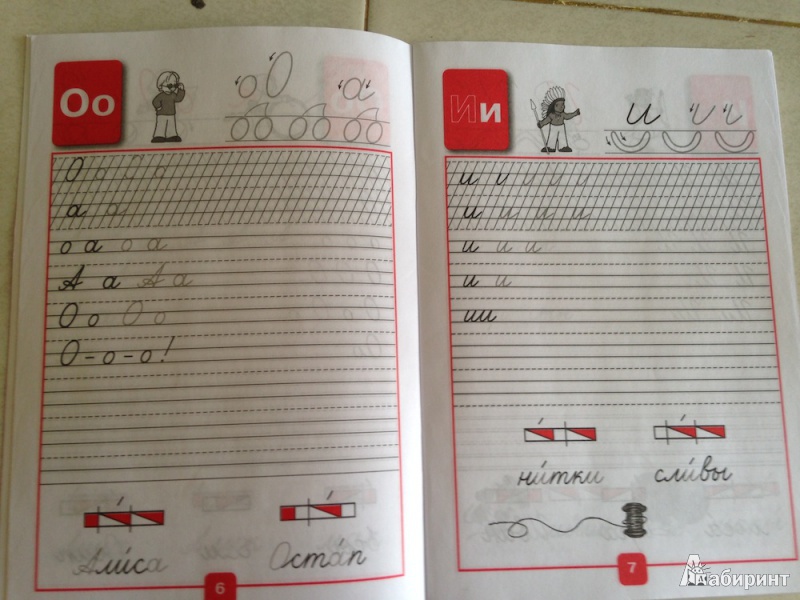 Оо
о О а
О о о о
а а
о а о а
А а А а
О о О о
О-о-о!
Али́са Оста́п
6
Ии
и
и и и и
и и и
и и
ии
ни́тки сли́вы
7
Лабиринт